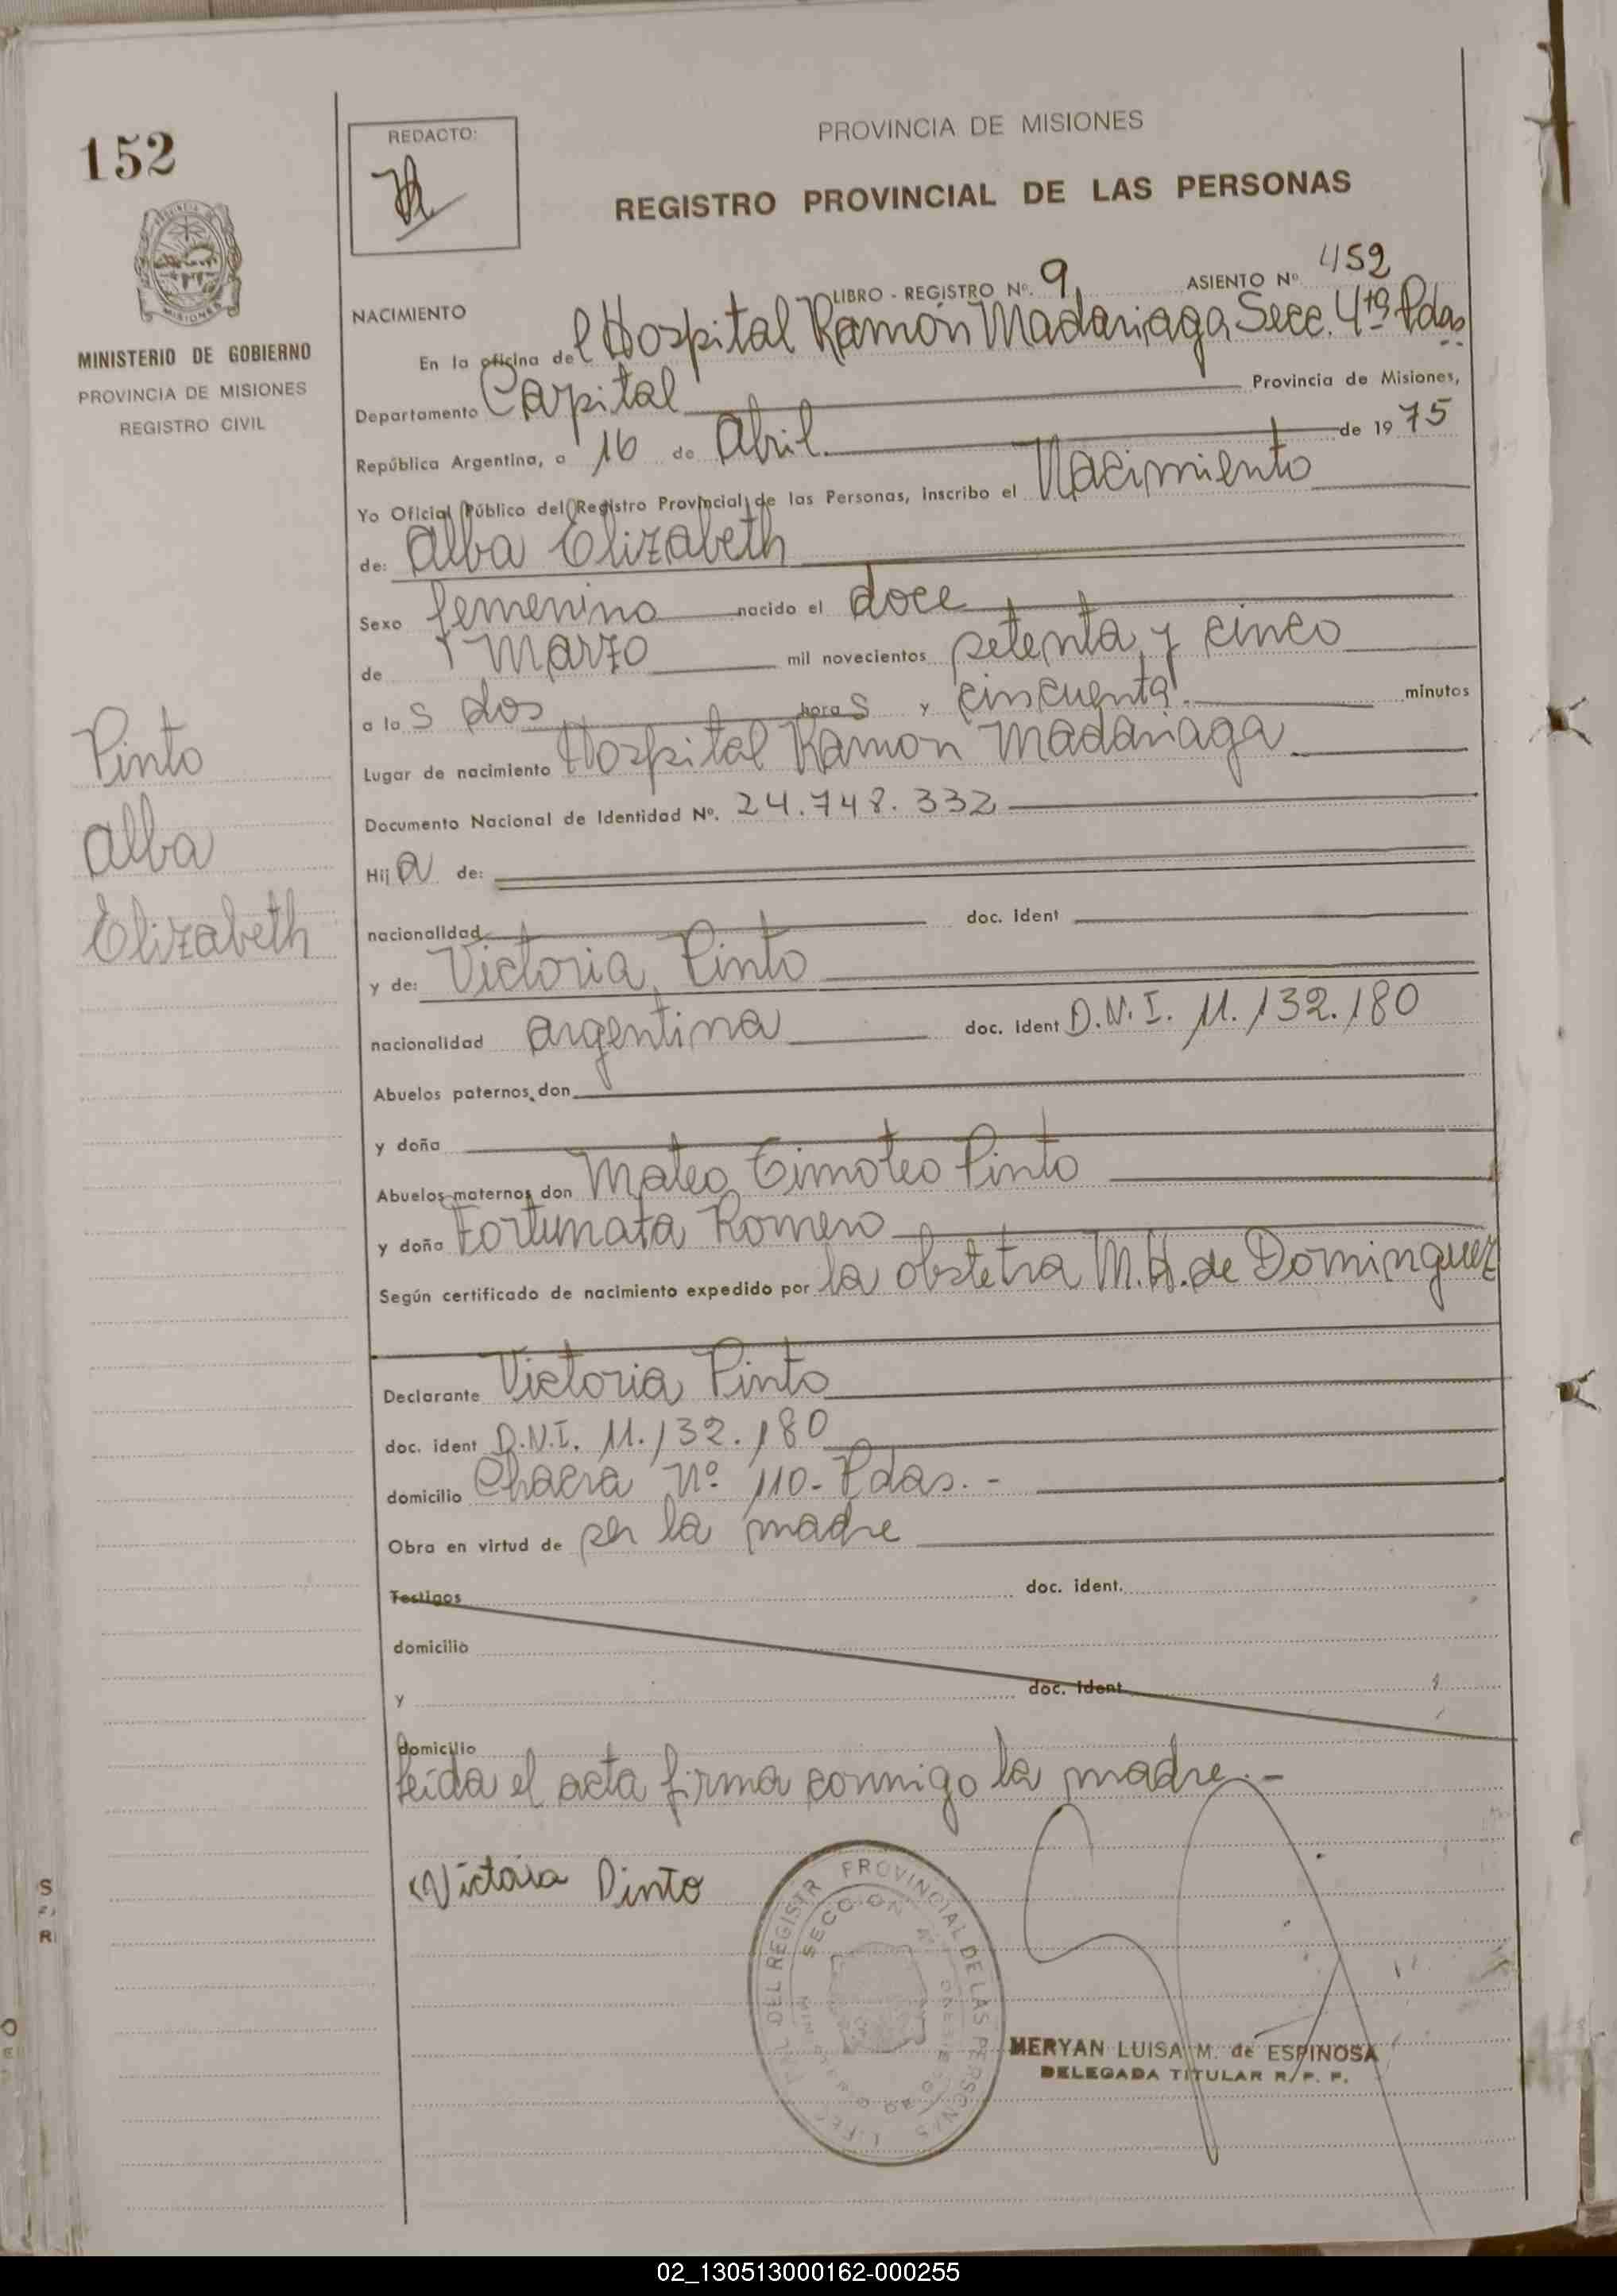 152
REDACTO:
PROVINCIA DE MISIONES
REGISTRO PROVINCIAL DE LAS PERSONAS
MINISTERIO DE GOBIERNO
PROVINCIA DE MISIONES
REGISTRO CIVIL
Pinto
Alba
Elizabeth
NACIMIENTO LIBRO - REGISTRO Nº. 9 ASIENTO Nº 452
En la oficina del Hospital Ramón Madariaga Secc. 4ta Pdas
Departamento Capital Provincia de Misiones,
República Argentina, a 16 de Abril de 1975
Yo Oficial Público del Registro Provincial de las Personas, inscribo el Nacimiento
de: Alba Elizabeth
Sexo femenino nacido el doce
de Marzo mil novecientos setenta y cinco
a las dos horas y cincuenta minutos
Lugar de nacimiento Hospital Ramon Madariaga
Documento Nacional de Identidad Nº. 24.748.332
Hija de:
nacionalidad doc. ident
y de: Victoria Pinto
nacionalidad argentina doc. ident D.N.I. 11.132.180
Abuelos paternos don
y doña
Abuelos maternos don Mateo Timoteo Pinto
y doña Fortunata Romero
Según certificado de nacimiento expedido por la obstetra M.H. de Dominguez
Declarante Victoria Pinto
doc. ident D.N.I. 11.132.180
domicilio Chacra Nº 110- Pdas. -
Obra en virtud de ser la madre
Testigos doc. ident.
domicilio
y doc. ident
domicilio
leida el acta firma conmigo la madre.-
Victoria Pinto
DEL REGISTR PROVINCIAL DE LAS PERSONAS
SECCION
MERYAN LUISA M. de ESPINOSA
DELEGADA TITULAR R. P. P.
S
R
02_130513000162-000255